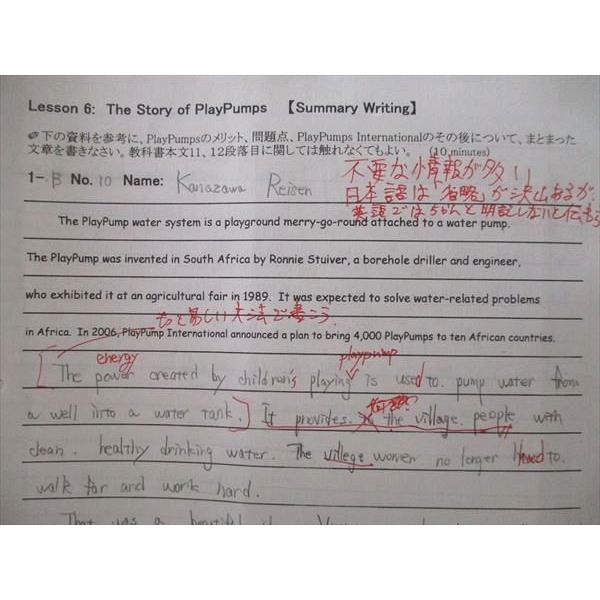 Lesson 6: The Story of PlayPumps 【Summary Writing】
下の資料を参考に、PlayPumpsのメリット、問題点、PlayPumps Internationalのその後について、まとまった
文章を書きなさい。教科書本文11、12段落目に関しては触れなくてもよい。 (10 minutes)
不要な情報が多い
1-B No. 10 Name: Kanazawa Reisen
日本語は「省略」が沢山あるが、
英語ではちゃんと明記しないと
The PlayPump water system is a playground merry-go-round attached to a water pump.
The PlayPump was invented in South Africa by Ronnie Stuiver, a borehole driller and engineer,
who exhibited it at an agricultural fair in 1989. It was expected to solve water-related problems
in Africa. In 2006, PlayPump International announced a plan to bring 4,000 PlayPumps to ten African countries.
energy playpump
The power created by children's playing is used to pump water from
a well into a water tank. It provides the village people with
clean, healthy drinking water. The village women no longer need to
walk far and work hard.
That was a beautiful